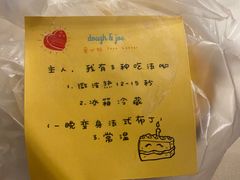 dough & joe
主人，我有3种吃法哟
1.微波热12-15秒
2.冰箱冷藏
(一晚变身法式布丁)
3.常温